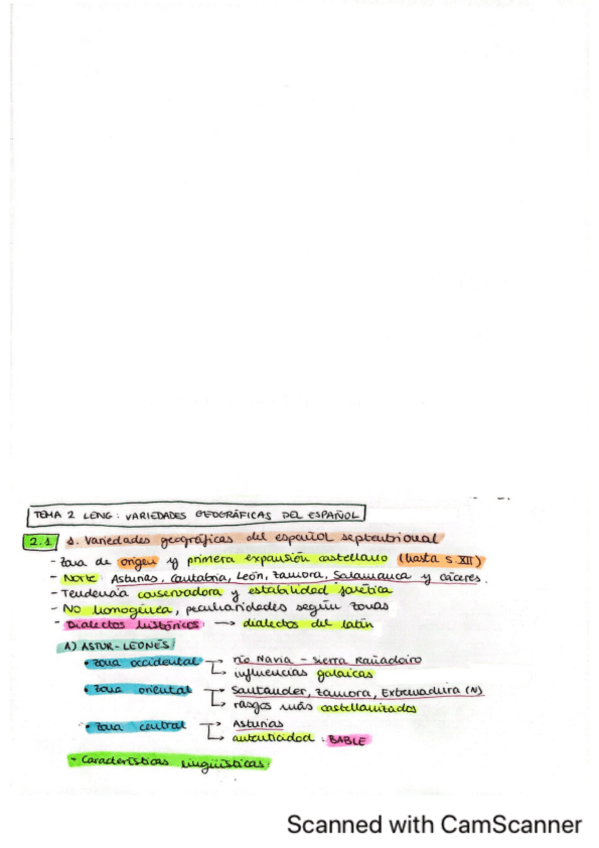 TEMA 2 LENG: VARIEDADES GEOGRÁFICAS DEL ESPAÑOL
2.1 1. Variedades geográficas del español septentrional
- Zona de origen y primera expansión castellano (hasta s.XII)
- Norte: Asturias, Cantabria, León, Zamora, Salamanca y cáceres.
- Tendencia conservadora y estabilidad fonética
- No homogénea, peculiaridades según zonas
- Dialectos históricos: → dialectos del latín
A) ASTUR-LEONÉS:
• Zona occidental → río Navia - Sierra Rañadoiro
→ influencias galaicas
• Zona oriental → Santander, Zamora, Extremadura (N)
→ rasgos más castellanizados
• Zona central → Asturias
→ autenticidad: BABLE
- Características lingüísticas:
Scanned with CamScanner